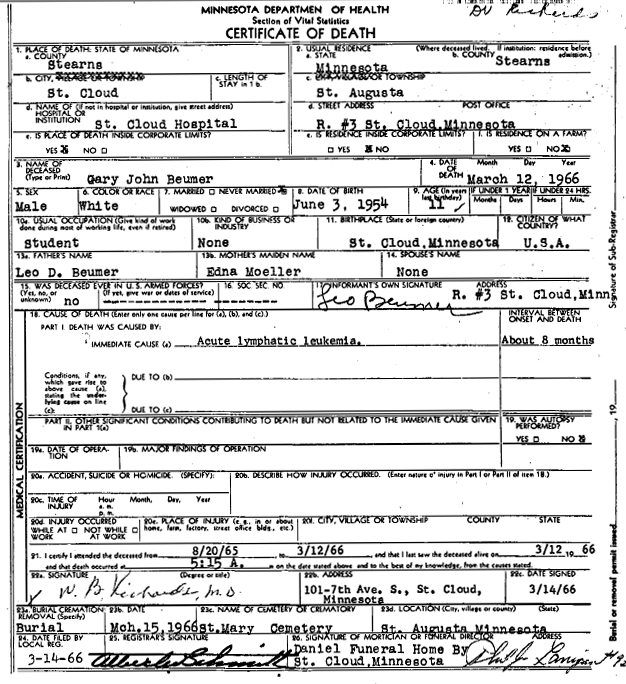 Dr Richards
MINNESOTA DEPARTMEN OF HEALTH
Section of Vital Statistics
CERTIFICATE OF DEATH
1. PLACE OF DEATH: STATE OF MINNESOTA
a. COUNTY
Stearns
2. USUAL RESIDENCE (Where deceased lived. If institution: residence before admission.)
a. STATE Minnesota b. COUNTY Stearns
b. CITY,
St. Cloud
c. LENGTH OF STAY in 1 b.
c. TOWNSHIP
St. Augusta
d. NAME OF (If not in hospital or institution, give street address)
HOSPITAL OR
INSTITUTION St. Cloud Hospital
d. STREET ADDRESS POST OFFICE
R. #3 St. Cloud, Minnesota
e. IS PLACE OF DEATH INSIDE CORPORATE LIMITS?
YES NO
e. IS RESIDENCE INSIDE CORPORATE LIMITS?
YES NO
f. IS RESIDENCE ON A FARM?
YES NO
3. NAME OF
DECEASED
(Type or Print) Gary John Beumer
4. DATE OF DEATH Month Day Year
March 12, 1966
5. SEX
Male
6. COLOR OR RACE
White
7. MARRIED NEVER MARRIED
WIDOWED DIVORCED
8. DATE OF BIRTH
June 3, 1954
9. AGE (In years last birthday)
11
IF UNDER 1 YEAR
Months Days
IF UNDER 24 HRS.
Hours Min.
10a. USUAL OCCUPATION (Give kind of work done during most of working life, even if retired)
Student
10b. KIND OF BUSINESS OR INDUSTRY
None
11. BIRTHPLACE (State or foreign country)
St. Cloud, Minnesota
12. CITIZEN OF WHAT COUNTRY?
U.S.A.
13a. FATHER'S NAME
Leo D. Beumer
13b. MOTHER'S MAIDEN NAME
Edna Moeller
14. SPOUSE'S NAME
None
15. WAS DECEASED EVER IN U.S. ARMED FORCES?
(Yes, no, or unknown) (If yes, give war or dates of service)
no
16. SOC. SEC. NO.
INFORMANT'S OWN SIGNATURE ADDRESS
Leo Beumer R. #3 St. Cloud, Minn
18. CAUSE OF DEATH (Enter only one cause per line for (a), (b), and (c).)
INTERVAL BETWEEN ONSET AND DEATH
PART I. DEATH WAS CAUSED BY:
IMMEDIATE CAUSE (a) Acute lymphatic leukemia. About 8 months
Conditions, if any, which gave rise to above cause (a), stating the underlying cause on line (c):
DUE TO (b)
DUE TO (c)
PART II. OTHER SIGNIFICANT CONDITIONS CONTRIBUTING TO DEATH BUT NOT RELATED TO THE IMMEDIATE CAUSE GIVEN IN PART 1(a)
19. WAS AUTOPSY PERFORMED?
YES NO
19a. DATE OF OPERATION
19b. MAJOR FINDINGS OF OPERATION
20a. ACCIDENT, SUICIDE OR HOMICIDE. (SPECIFY):
20b. DESCRIBE HOW INJURY OCCURRED. (Enter nature of injury in Part I or Part II of item 18.)
20c. TIME OF INJURY Hour a.m. p.m. Month, Day, Year
20d. INJURY OCCURRED
WHILE AT WORK NOT WHILE AT WORK
20e. PLACE OF INJURY (e.g., in or about home, farm, factory, street office bldg., etc.)
20f. CITY, VILLAGE OR TOWNSHIP COUNTY STATE
21. I certify I attended the deceased from 8/20/65 to 3/12/66 and that I last saw the deceased alive on 3/12 19 66
and that death occurred at 5:15 A. m on the date stated above and to the best of my knowledge, from the causes stated.
22a. SIGNATURE (Degree or title)
W. B. Richards, M.D.
22b. ADDRESS
101-7th Ave. S., St. Cloud, Minnesota
22c. DATE SIGNED
3/14/66
23a. BURIAL CREMATION REMOVAL (Specify)
Burial
23b. DATE
Mch. 15, 1966
23c. NAME OF CEMETERY OF CREMATORY
St. Mary Cemetery
23d. LOCATION (City, village or county) (State)
St. Augusta Minnesota
24. DATE FILED BY LOCAL REG.
3-14-66
25. REGISTRAR'S SIGNATURE
26. SIGNATURE OF MORTICIAN OR FUNERAL DIRECTOR ADDRESS
Daniel Funeral Home By
St. Cloud, Minnesota
MEDICAL CERTIFICATION
Signature of Sub-Registrar
19
Burial or removal permit issued